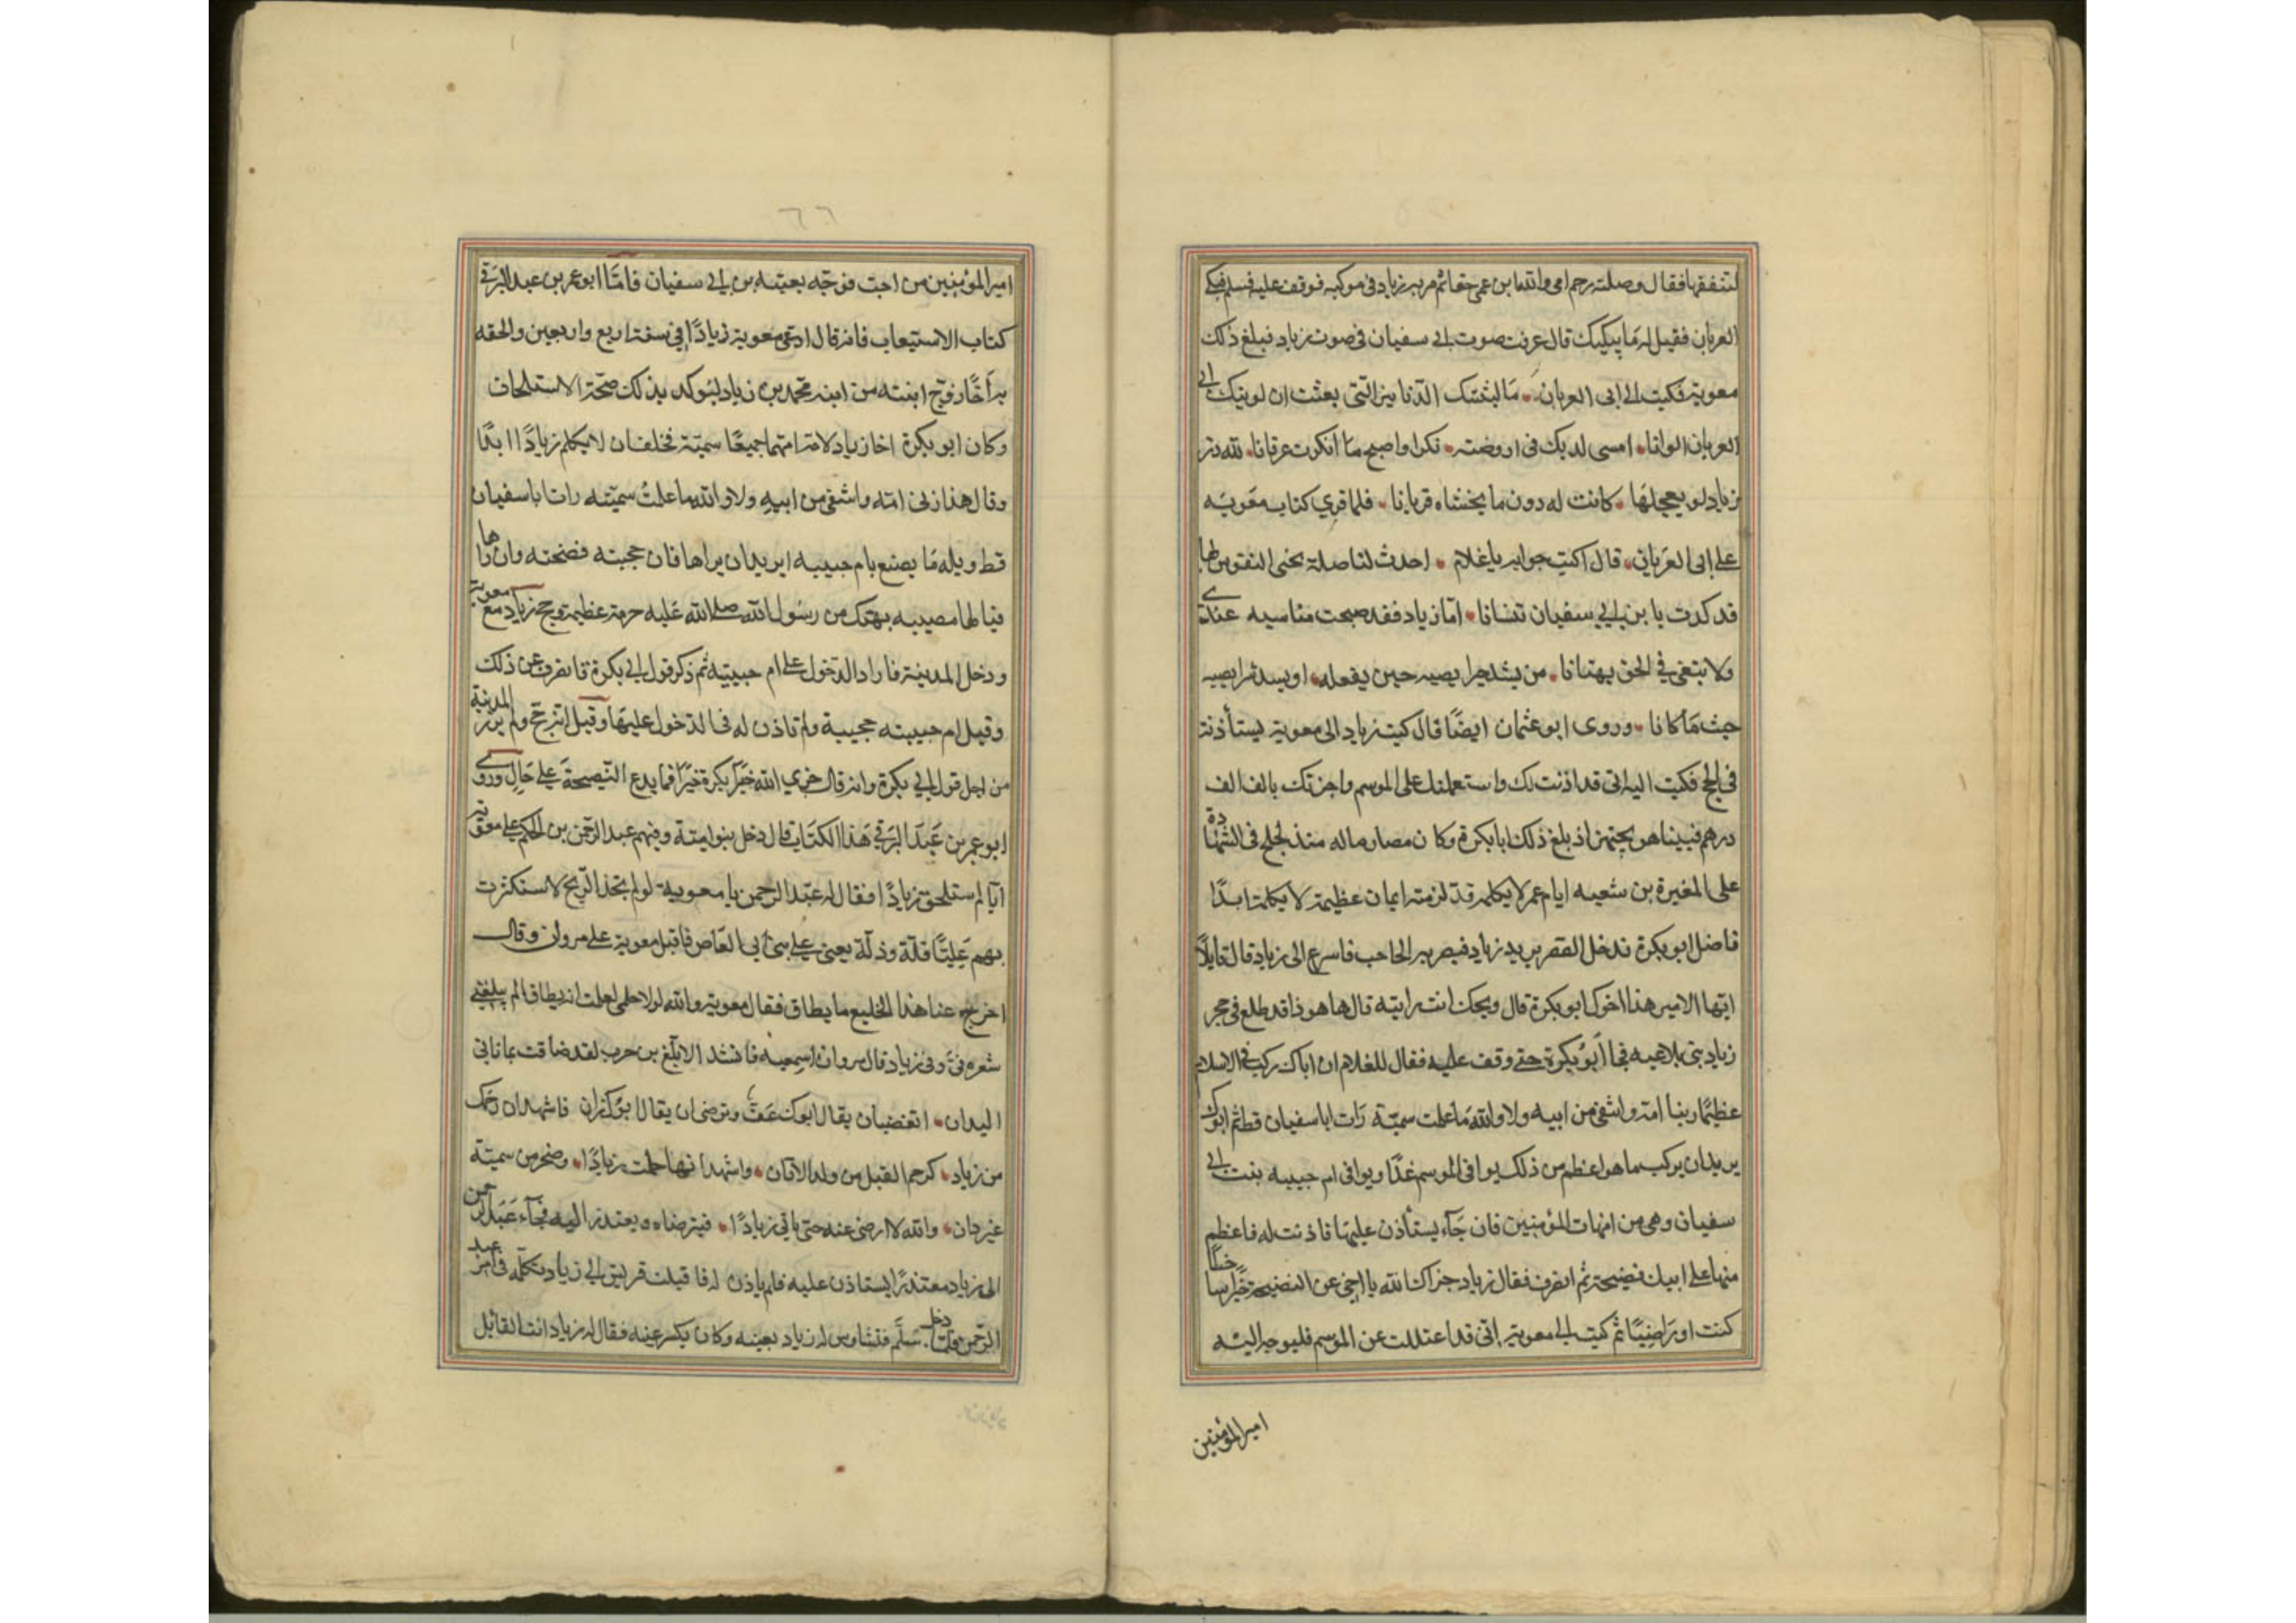 لتنفقها فقال وصلته رحم اى والله ابن عمى حقا ثم مر به زياد فى موكبه فوقف عليه فسلم فبكى
العريان فقيل له ما يبكيك قال عرفت صوت ابى سفيان فى صوت زياد فبلغ ذلك
معوية فكتب الى ابى العريان ما لبثتك الدنانير التى بعثت ان لونتك ابى
العريان الوانا امسى لديك فى ارومته نكرا واصبح ما انكرت عرفانا لله در
زياد لو يعجلها كانت له دون ما يخشاه قربانا فلما قرى كتاب معوية
على ابى العريان قال اكتب جوابه يا غلام احدث لنا صلة تحيى النفوس بها
قد كدت يا بن ابى سفيان تنسانا اما زياد فقد صحت مناسبه عندى
ولا تبتغى فى الحق بهتانا من يسد خيرا يصبه حين يفعله او يسد شرا يصبه
حيث ما كانا وروى ابو عثمان ايضا قال كتب زياد الى معوية يستأذنه
فى الحج فكتب اليه انى قد اذنت لك واستعملتك على الموسم واجزتك بالف الف
درهم فبينا هو يتجهز اذ بلغ ذلك ابا بكرة وكان مصارما له منذ لجلج فى الشهادة
على المغيرة بن شعبه ايام عمر لا يكلمه قد لزمته ايمان عظيمة لا يكلمه ابدا
فاضل ابو بكرة فدخل القصر يريد زياد فبصر به الحاجب فاسرع الى زياد قال قايلا
ايها الامير هذا اخوك ابو بكرة قال ويحك انت رايته قال ها هو ذا قد طلع فى حجر
زياد بنى يلاعبه فجا ابو بكرة حتى وقف عليه فقال للغلام ان اباك ركب فى الاسلام
عظيما زنا امه وانتفى من ابيه ولا والله ما علمت سمية رات ابا سفيان قط ثم ابوك
يريد ان يركب ما هو اعظم من ذلك يوافى الموسم غدا ويوافى ام حبيبه بنت ابى
سفيان وهى من امهات المؤمنين فان جآء يستأذن عليها فاذنت له فاعظم
منها على ابيك فضيحة ثم انصرف فقال زياد جزاك الله يا اخى عن النصيحة خيرا ساخطا
كنت او راضيا ثم كتب الى معوية انى قد اعتللت عن الموسم فليوجه اليه
امير المؤمنين
٦٦
امير المؤمنين من احب فوجه بعيتبه بن ابى سفيان فامّا ابو عمر بن عبد البر فى
كتاب الاستيعاب فانه قال ادعى معوية زيادًا فى سنة اربع واربعين والحقه
به اخًا وزوج ابنته من ابنه محمد بن زياد ليؤكد بذلك صحّة الاستلحاق
وكان ابو بكرة اخا زياد لامه امهما جميعًا سميّة فحلف ان لا يكلم زيادًا ابدًا
وقال هذا زنى امّه وانتفى من ابيهِ ولا والله ما علمتُ سميّه رات ابا سفيان
قط ويله مَا يصنع بام حبيبه ايريد ان يراها فان حجبته فضحته وان راها
فيا لها مصيبه يهتك من رسول الله صلى الله عليه حرمة عظيمة وحج زياد مع معوية
ودخل المدينة فاراد الدّخول على ام حبيبة ثم ذكر قول ابى بكرة فانصرف عن ذلك
وقيل ام حبيبته حجبته ولم تاذن له فى الدخول عليها وقيل انه حجّ ولم يزر المدينة
من اجل قول ابى بكرة وانه قال جزى الله خيرًا ابا بكرة خيرًا فما يدع النّصيحة على حَالٍ وروى
ابو عمر بن عبد البر فى هذا الكتاب قال دخل بنو اميّة وفيهم عبد الرّحمن بن الحكم على معوية
ايّام استلحق زيادًا فقال له عبد الرحمن يا معوية لو لم تجد الّا الزّنج لاستكثرت
بهم عَليْنَا قلّة وذلّة يعنى على بنى ابى العَاص فاقبل معوية على مروان وقال
اخرج عنا هذا الخليع ما يطاق فقال معوية والله لولا حلمى لعلمت انه يطاق الم يبلغنى
شعره فىّ وفى زياد قال مروان اسمعنيه فانشد الا ابلغ بن حرب لقد ضاقت بما ناتى
اليدان اتغضب ان يقال ابوك عَفّ وترضى ان يقال ابوك زان فاشهد ان رحمك
من زياد كرحم الفيل من ولد الاتان واشهد انها حملت زيادًا وصخر من سميّة
غير دان والله لا ارضى عنه حتى ياتى زيادًا فيترضاه ويعتذر اليه فجآء عبد الرّحمن
الى زياد معتذرًا يستاذن عليه فلم ياذن له فاقبلت قريش الى زياد تكلّمه فى امر عبد
الرّحمن فلمّا دخل سَلّم فتشاوس له زياد بعينه وكان يكسر عينه فقال له زياد انت القائل